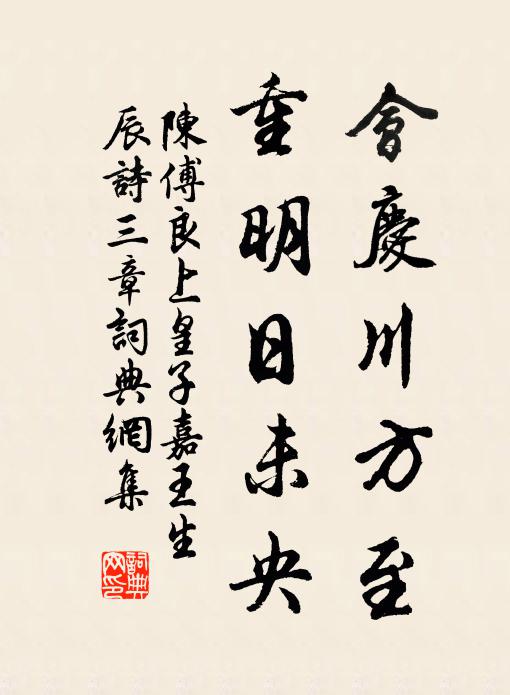 會慶川方至
重明日未央
陳傅良上皇子嘉王生
辰詩三章詞典網集
詞典
网印